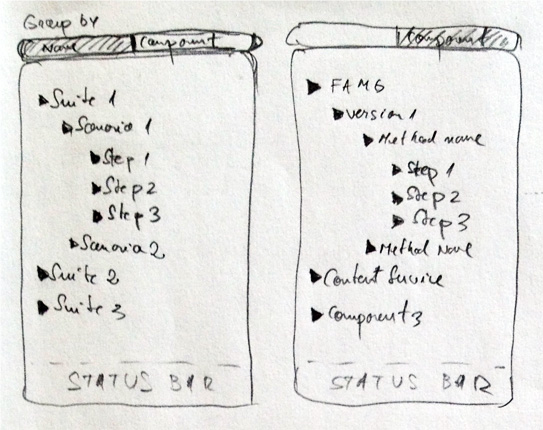 Group by
Name Component
Suite 1
Scenario 1
Step 1
Step 2
Step 3
Scenario 2
Suite 2
Suite 3
STATUS BAR
Component
FAMG
version 1
Method name
Step 1
Step 2
Step 3
Method Name
Content Service
Component 3
STATUS BAR